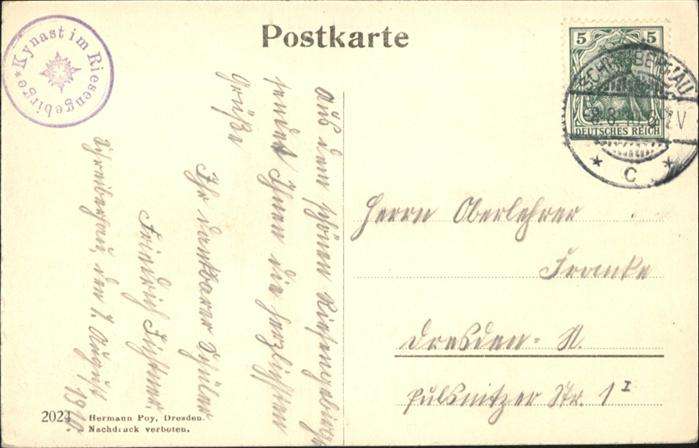 Postkarte
Kynast im Riesengebirge
5 5
DEUTSCHES REICH
SCHREIBERHAU
C
Aus dem schönen Riesengebirge
sendet Ihnen die herzlichsten
Grüße
Ihr dankbarer Schüler
Friedrich
Schreiberhau, den 7. August
Herrn Oberlehrer
Franke
Dresden-N.
Pulsnitzer Str. 1 I
2024 Hermann Poy, Dresden.
Nachdruck verboten.